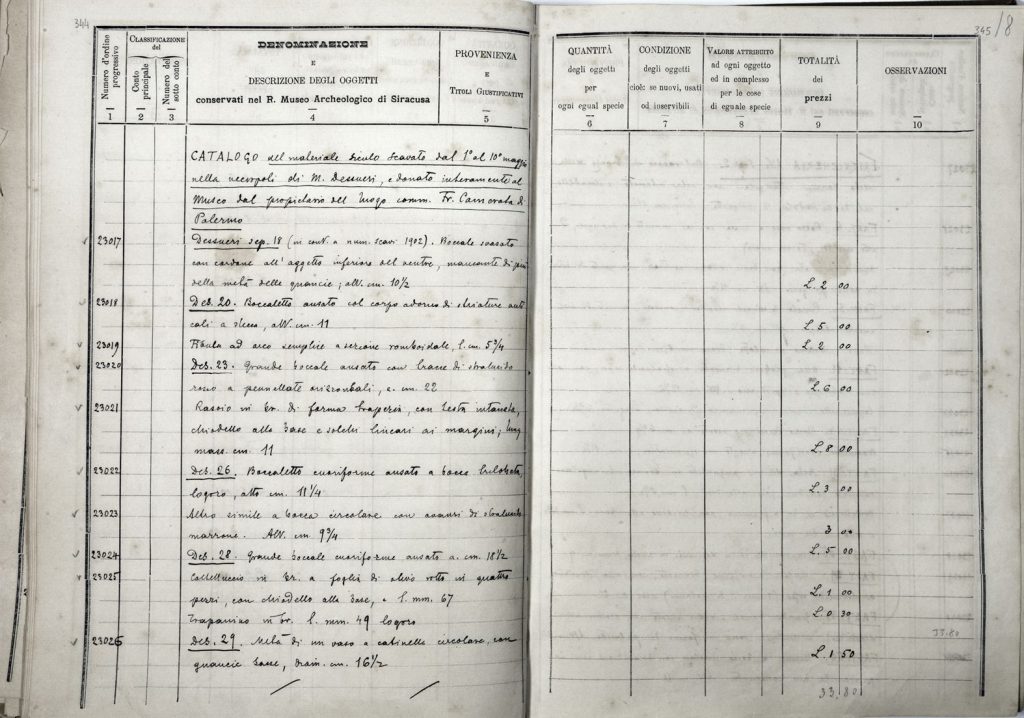 344
Numero d'ordine progressivo
1
CLASSIFICAZIONE
del
Conto principale
2
Numero del sotto conto
3
DENOMINAZIONE
E
DESCRIZIONE DEGLI OGGETTI
conservati nel R. Museo Archeologico di Siracusa
4
PROVENIENZA
E
TITOLI GIUSTIFICATIVI
5
CATALOGO del materiale siculo scavato dal 1° al 10° maggio
nella necropoli di M. Dessueri, e donato interamente al
Museo dal propietario del luogo comm. Fr. Camerata di
Palermo
23017 Dessueri sep. 18 (in cont. a num. scavi 1902). Boccale svasato
con cordone all'aggetto inferiore del ventre, mancante di
della metà delle guancie; alt. cm. 10½
23018 Des. 20. Boccaletto ansato col corpo adorno di striature
a stecco, alt. cm. 11
23019 Fibula ad arco semplice a sezione romboidale, l. cm. 5¾
23020 Des. 23. Grande boccale ansato con tracce di stralucido
rosso a pennellate orizzontali, a. cm. 22
23021 Rasoio in br. di forma trapezia, con testa intaccata,
chiodello alla base e solchi lineari ai margini; lung.
mass. cm. 11
23022 Des. 26. Boccaletto cuoriforme ansato a bocca trilobata,
logoro, alto cm. 11¼
23023 Altro simile a bocca circolare con avanzi di stralucido
marrone. Alt. cm 9¾
23024 Des. 28. Grande boccale cuoriforme ansato a. cm. 18½
23025 Coltelluccio in br. a foglia di olivo rotto in quattro
pezzi, con chiodello alla base, l. mm. 67
Trapanino in br. l. mm. 49 logoro
23026 Des. 29. Metà di un vaso a catinella circolare con
guancie basse, diam. cm. 16½
345/8
QUANTITÀ
degli oggetti
per
ogni egual specie
6
CONDIZIONE
degli oggetti
cioè: se nuovi, usati
od inservibili
7
VALORE ATTRIBUITO
ad ogni oggetto
ed in complesso
per le cose
di eguale specie
8
TOTALITÀ
dei
prezzi
9
OSSERVAZIONI
10
L. 2 00
L. 5 00
L. 2 00
L. 6 00
L. 8 00
L. 3 00
3 00
L. 5 00
L. 1 00
L. 0 30
33.80
L. 1 50
33.80